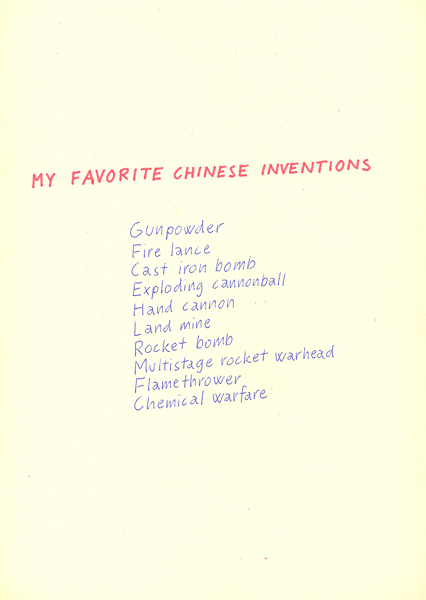 MY FAVORITE CHINESE INVENTIONS
Gunpowder
Fire lance
Cast iron bomb
Exploding cannonball
Hand cannon
Land mine
Rocket bomb
Multistage rocket warhead
Flamethrower
Chemical warfare